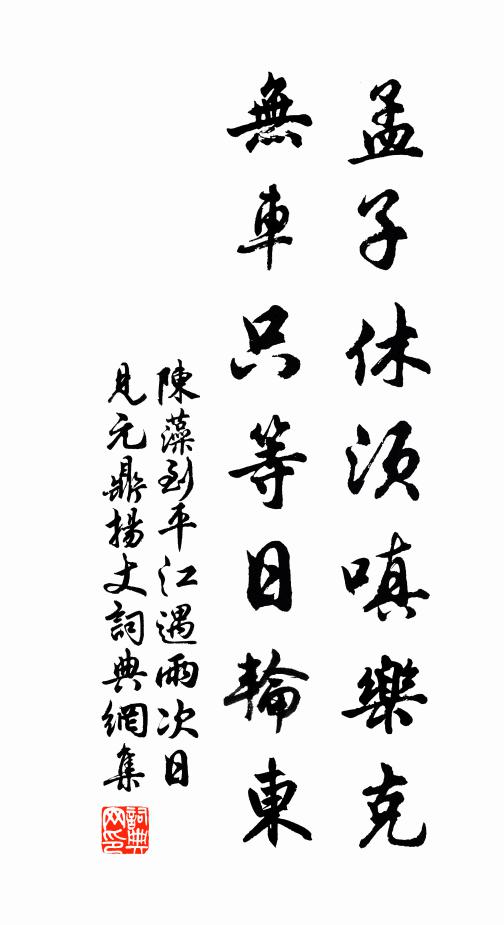 孟子休須嗔樂克
無車只等日輪東
陳藻到平江遇雨次日
見元鼎揚丈詞典網集
詞典網印